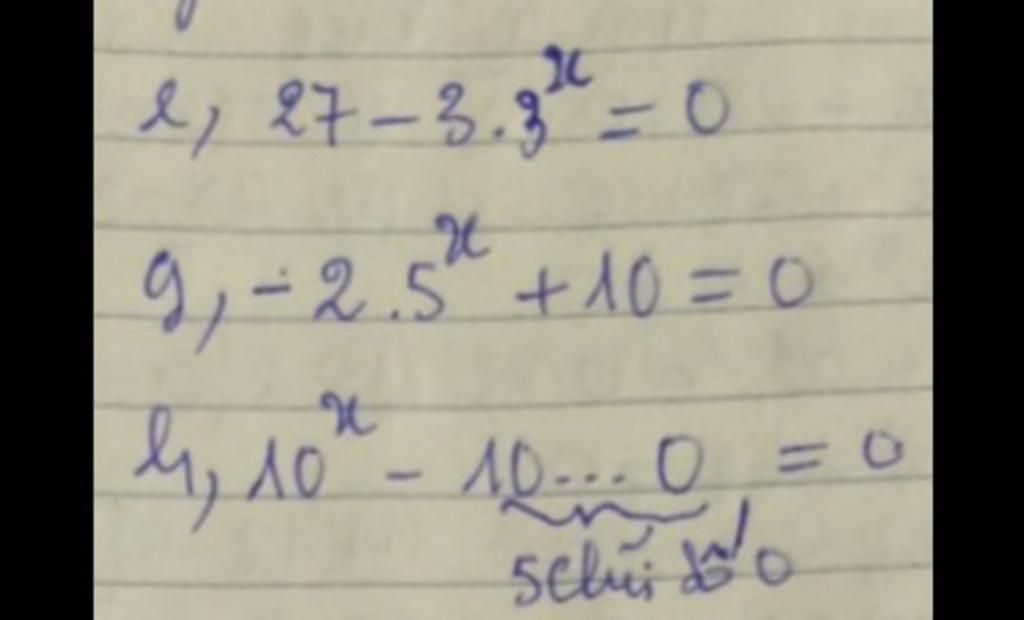 e, 27 - 3.3^x = 0
g, - 2.5^x + 10 = 0
h, 10^x - 10...0 = 0
5 chữ số 0